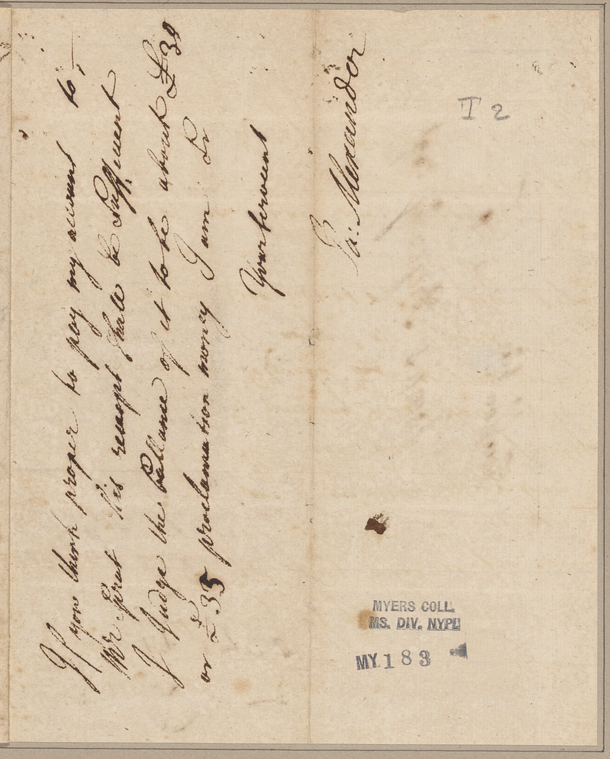 If you think proper to pay my account to,
Mr
his receipt shall be Suffecient
I Judge the ballance of it to be about £30
or £35 proclamation money I am Sr
Your
Alexander
I 2
MYERS COLL.
MS. DIV. NYPL
MY 183